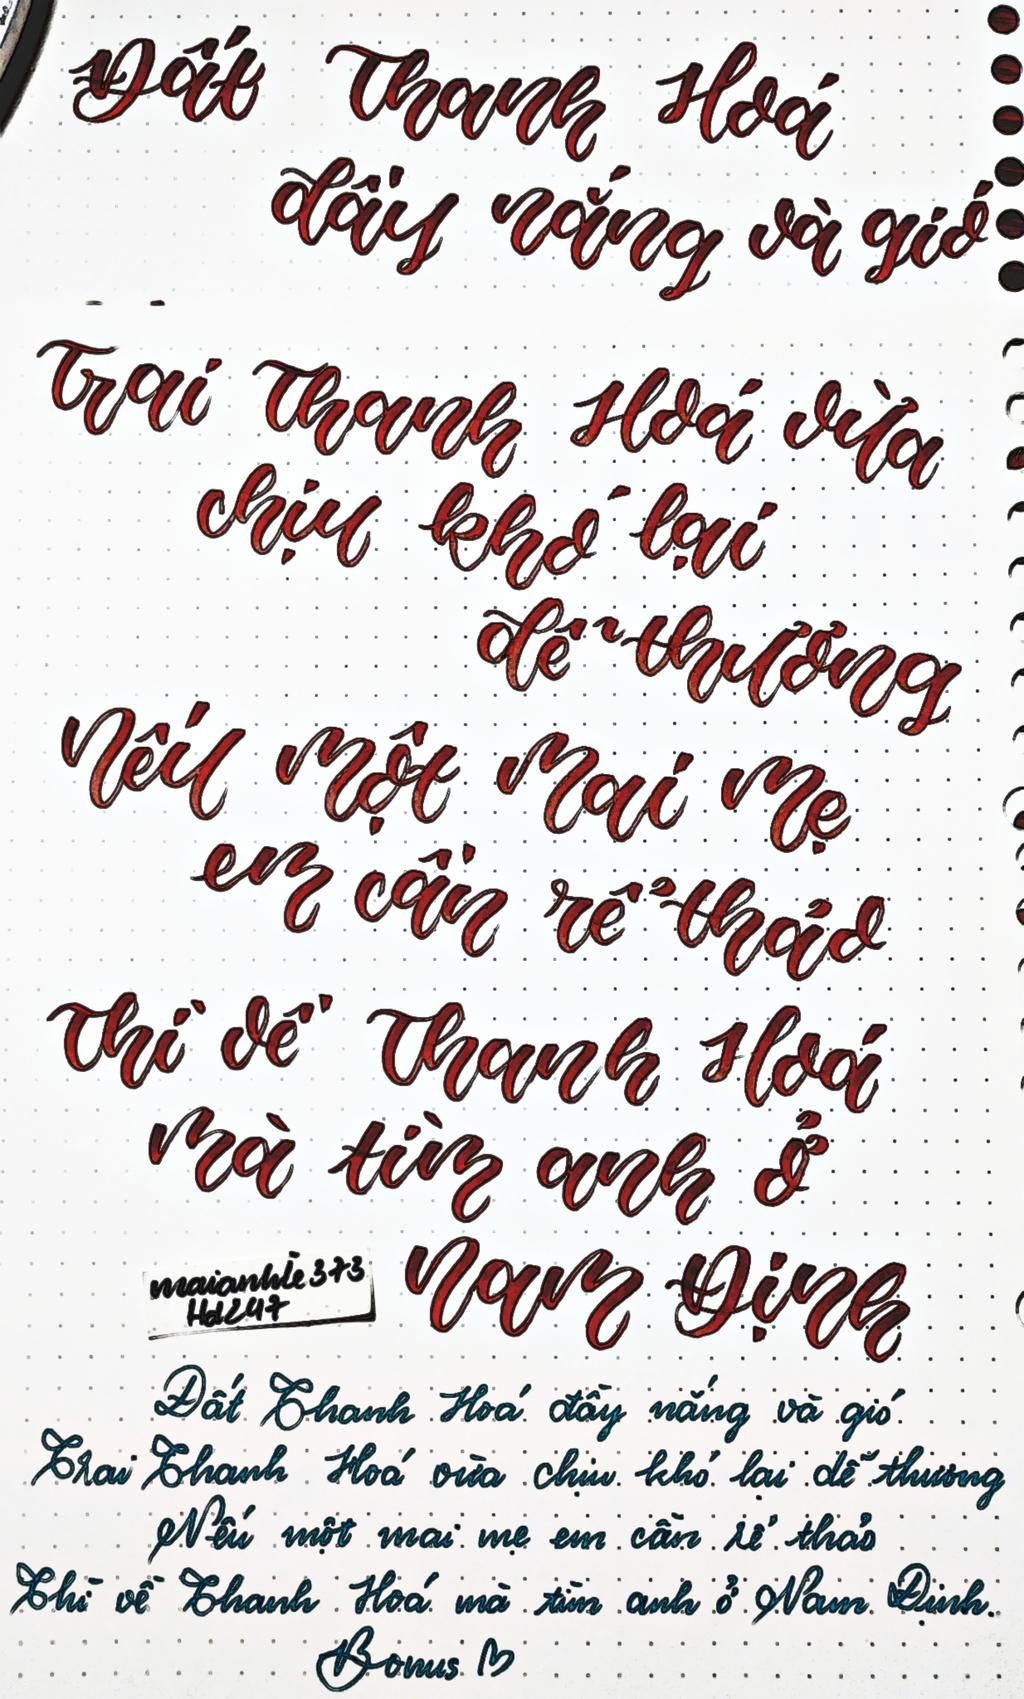 Đất Thanh Hoá
đầy nắng và gió
Trai Thanh Hoá vừa
chịu khó lại
dễ thương
Nếu một mai mẹ
em cần rể thảo
Thì về Thanh Hoá
mà tìm anh ở
Nam Định
maianhle373
Hd247
Đất Thanh Hoá đầy nắng và gió
Trai Thanh Hoá vừa chịu khó lại dễ thương
Nếu một mai mẹ em cần rể thảo
Thì về Thanh Hoá mà tìm anh ở Nam Định.
Bonus